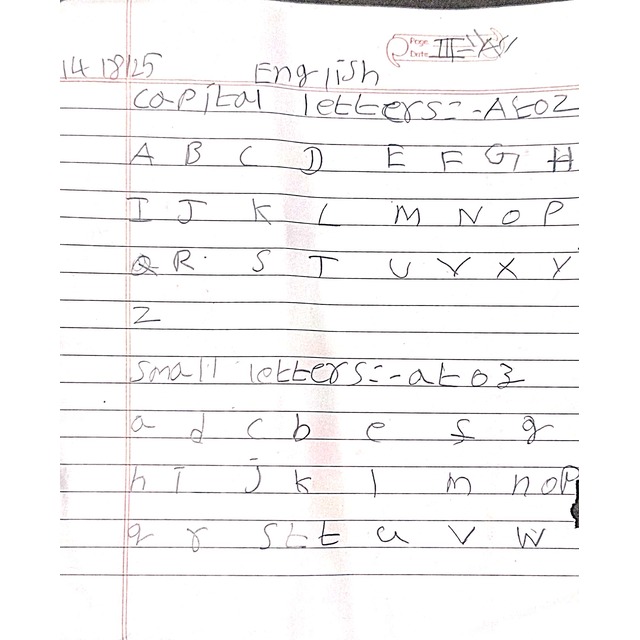 Page
Date III-"A"
14 18/25 English
capital letters:-A to Z
A B C D E F G H
I J K L M N O P
Q R S T U V X Y
Z
small letters:-a to z
a d c b e f g
h i j k l m n o P
q r s t t u v w